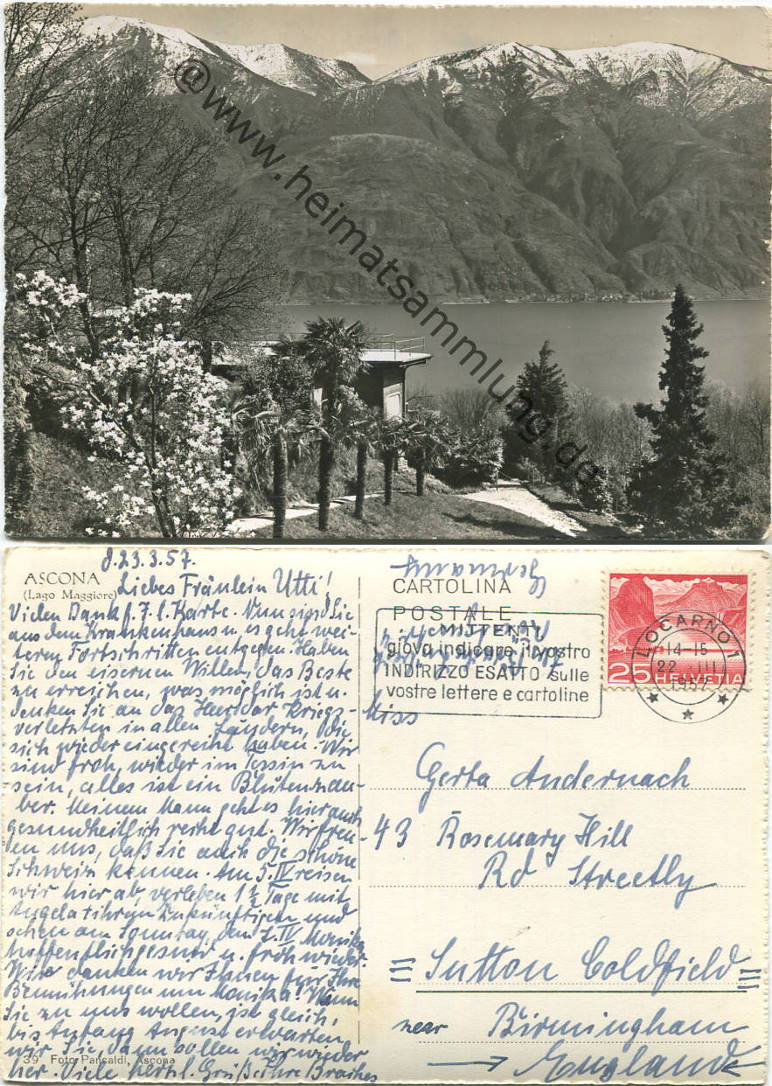 @www.heimatsammlung.de
ASCONA
(Lago Maggiore)
d. 23.3.57.
Liebes Fräulein Utti!
Vielen Dank f. I. l. Karte. Nun sind Sie
aus dem Krankenhaus u. es geht wei-
teren Fortschritten entgegen. Haben
Sie den eisernen Willen, das Beste
zu erreichen, was möglich ist u.
denken Sie an das Heer der Kriegs-
verletzten in allen Ländern, die
sich wieder eingereiht haben. Wir
sind froh, wieder im Tessin zu
sein, alles ist ein Blütenzau-
ber. Meinem Mann geht es hier auch
gesundheitlich recht gut. Wir freu-
en uns, daß Sie auch die schöne
Schweiz kennen. Am 5. IV reisen
wir hier ab, verleben 1½ Tage mit
Angela + ihrem Zukünftigen und
sehen am Sonntag, dem 7. IV Monika
hoffentlich gesund u. froh wieder.
Wir danken wir Ihnen für Ihre
Bemühungen um Monika! Wenn
Sie zu uns wollen, ist gleich,
bis Anfang August erwarten
wir Sie, dann wollen wir wieder
her. Viele herzl. Grüße Ihre
39 Foto Pancaldi, Ascona
Germany
CARTOLINA
POSTALE
MITTENTI
giova indicare il vostro
INDIRIZZO ESATTO sulle
vostre lettere e cartoline
LOCARNO 1
14-15
22. III
1957
25 HELVETIA
Miss
Gerta Andernach
43 Rosemary Hill
Rd Streetly
Sutton Coldfield
near Birmingham
England